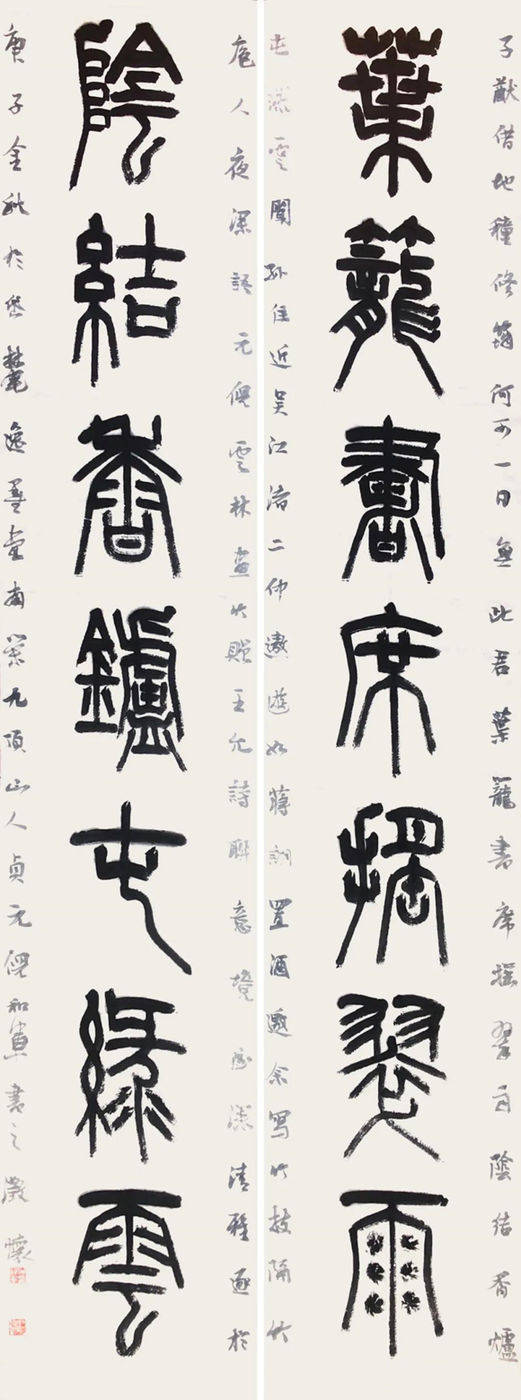 子猷借地種修筠何可一日無此君葉籠書席搖翠雨陰結香爐
葉籠書席搖翠雨
屯綠雲聞孫住近吳江渚二仲遨遊如蔣詡置酒邀余寫竹枝隔竹
庖人夜深語元倪雲林畫竹贈王允詩聯意境幽深清雅
陰結香鑪屯綠雲
庚子金秋於岱麓逸墨堂南窗九頂山人貞元倪和書之